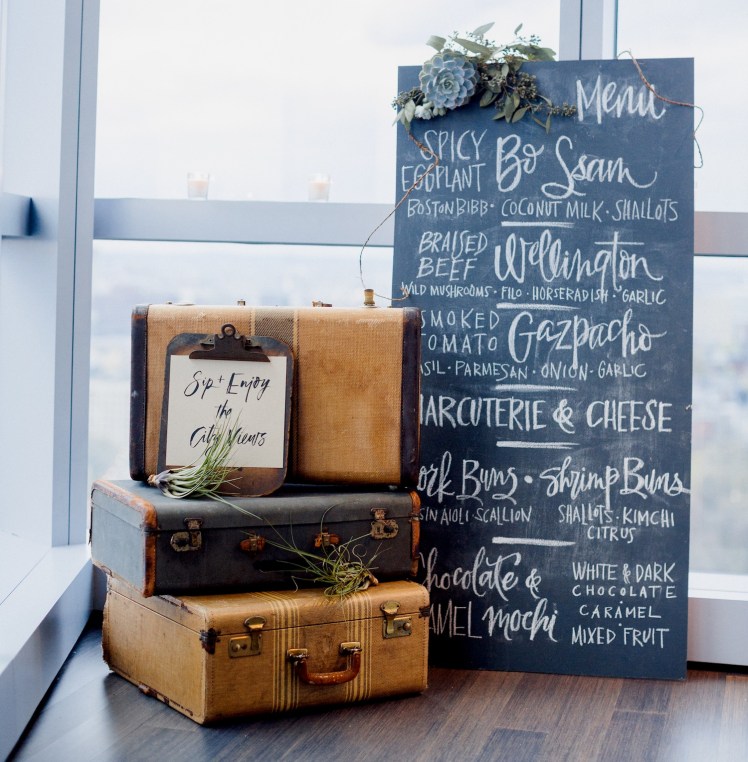 Menu
SPICY EGGPLANT Bo Ssam
BOSTON BIBB · COCONUT MILK · SHALLOTS
BRAISED BEEF Wellington
WILD MUSHROOMS · FILO · HORSERADISH · GARLIC
SMOKED TOMATO Gazpacho
ASIL · PARMESAN · ONION · GARLIC
HARCUTERIE & CHEESE
ork Buns · Shrimp Buns
SIN AIOLI · SCALLION
SHALLOTS · KIMCHI
CITRUS
Chocolate &
AMEL mochi
WHITE & DARK
CHOCOLATE
CARAMEL
MIXED FRUIT
Sip + Enjoy
the
City Views